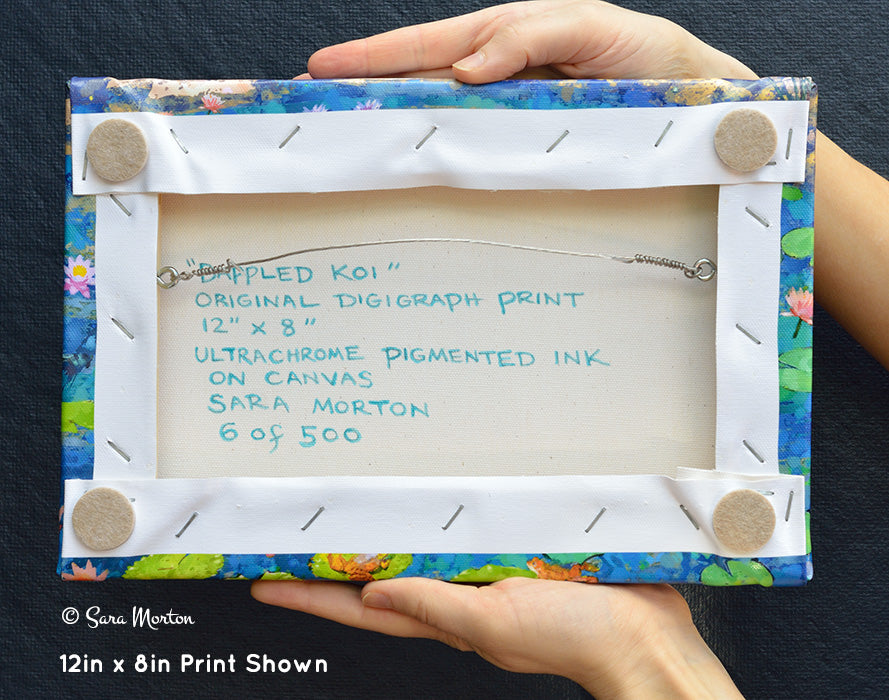 "DAPPLED KOI"
ORIGINAL DIGIGRAPH PRINT
12" x 8"
ULTRACHROME PIGMENTED INK
ON CANVAS
SARA MORTON
6 of 500
© Sara Morton
12in x 8in Print Shown